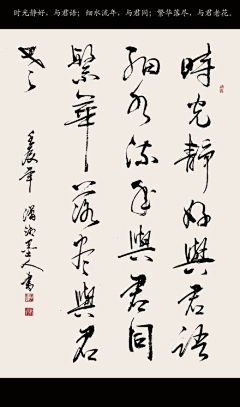 时光静好，与君语；细水流年，与君同；繁华落尽，与君老花。
時光靜好與君語
細水流年與君同
繁華落尽與君
老
壬辰年
人書